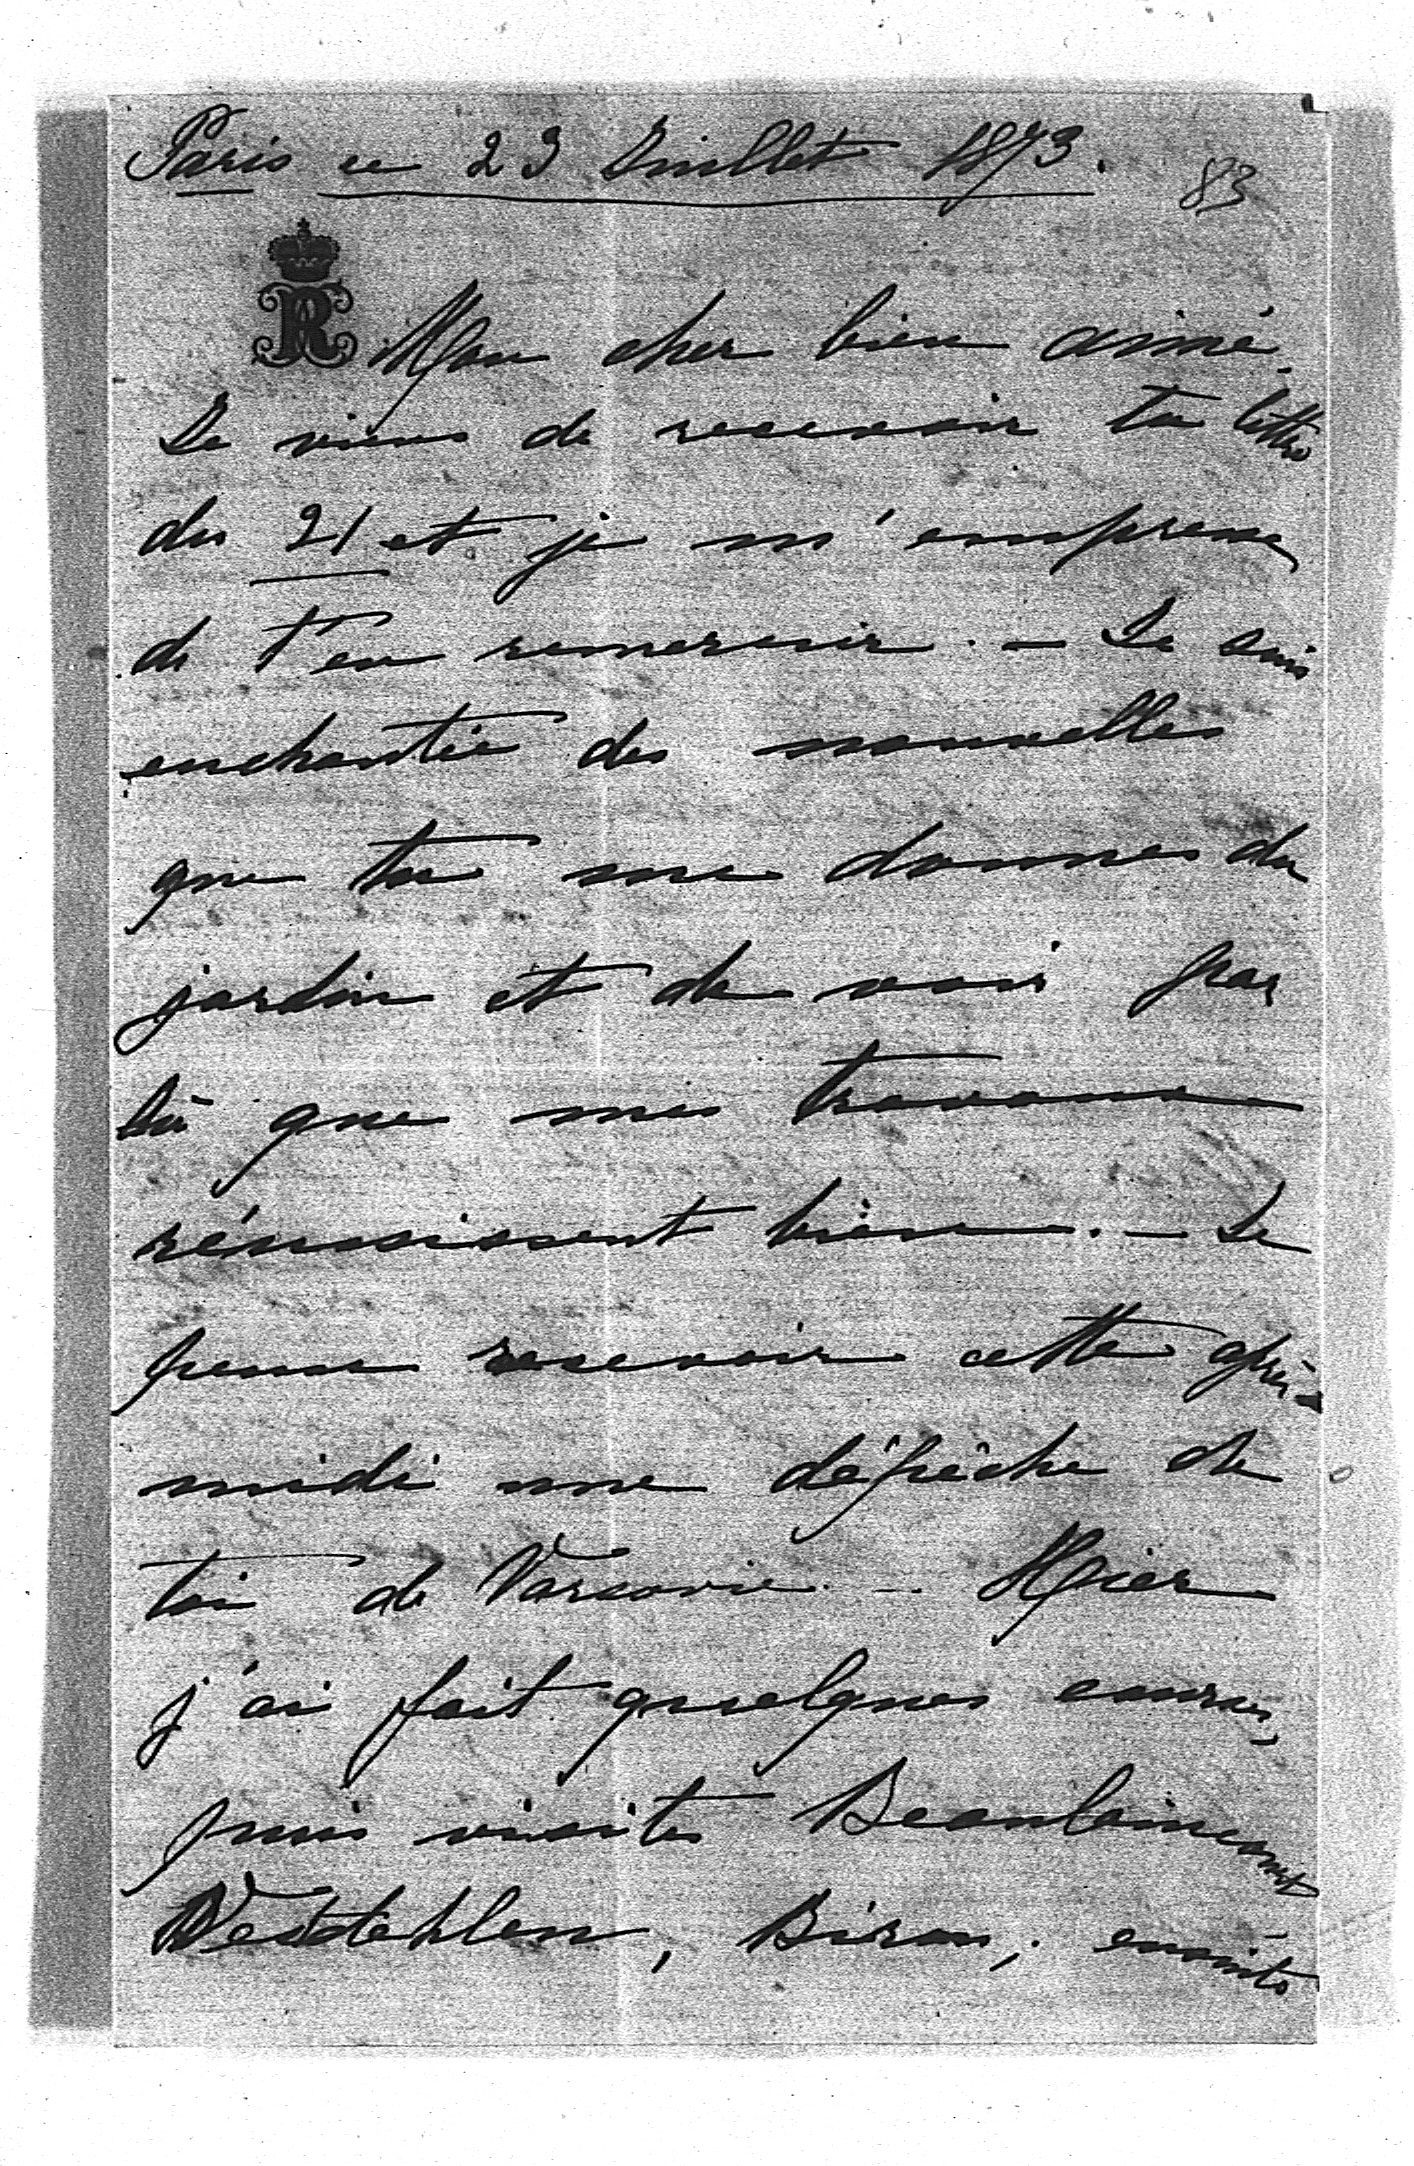 Paris ce 23 Juillet 1873.
83
R
Mon cher bien aimé.
Je viens de recevoir ta lettre
du 21 et je m'empresse
de t'en remercier. — Je suis
enchantée des nouvelles
que tu me donnes du
jardin et de voir par
là que mes travaux
réussissent bien. — Je
pense recevoir cette après-
midi une dépêche de
toi de Varsovie. — Hier
j'ai fait quelques courses,
puis visites Beaulaincourt
Westehlen, Biron, ensuite